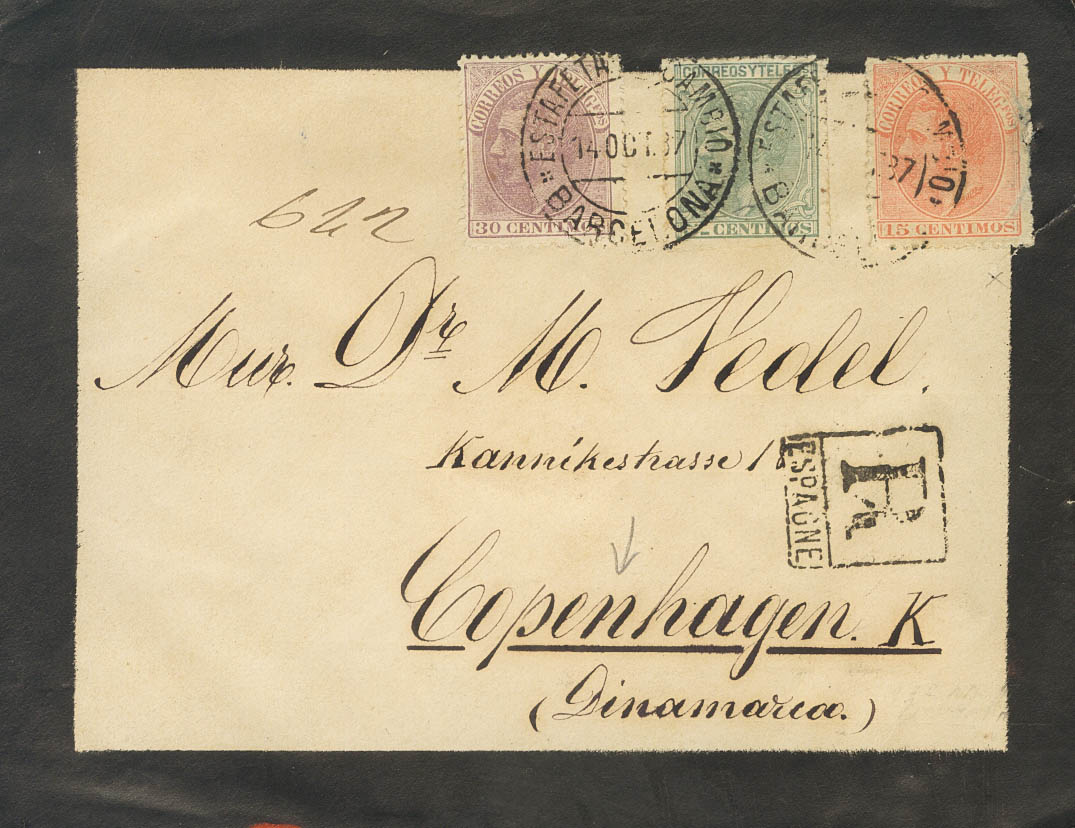 CORREOS Y TELEGFS
30 CENTIMOS
CORREOS Y TELEG
CENTIMOS
CORREOS Y TELEGFS
15 CENTIMOS
*ESTAFETA CAMBIO*
14 OCT. 87
BARCELONA
622
Mur. Dr. M. Vedel.
Kannikestrasse
R
ESPAGNE
Copenhagen. K
(Dinamarca.)